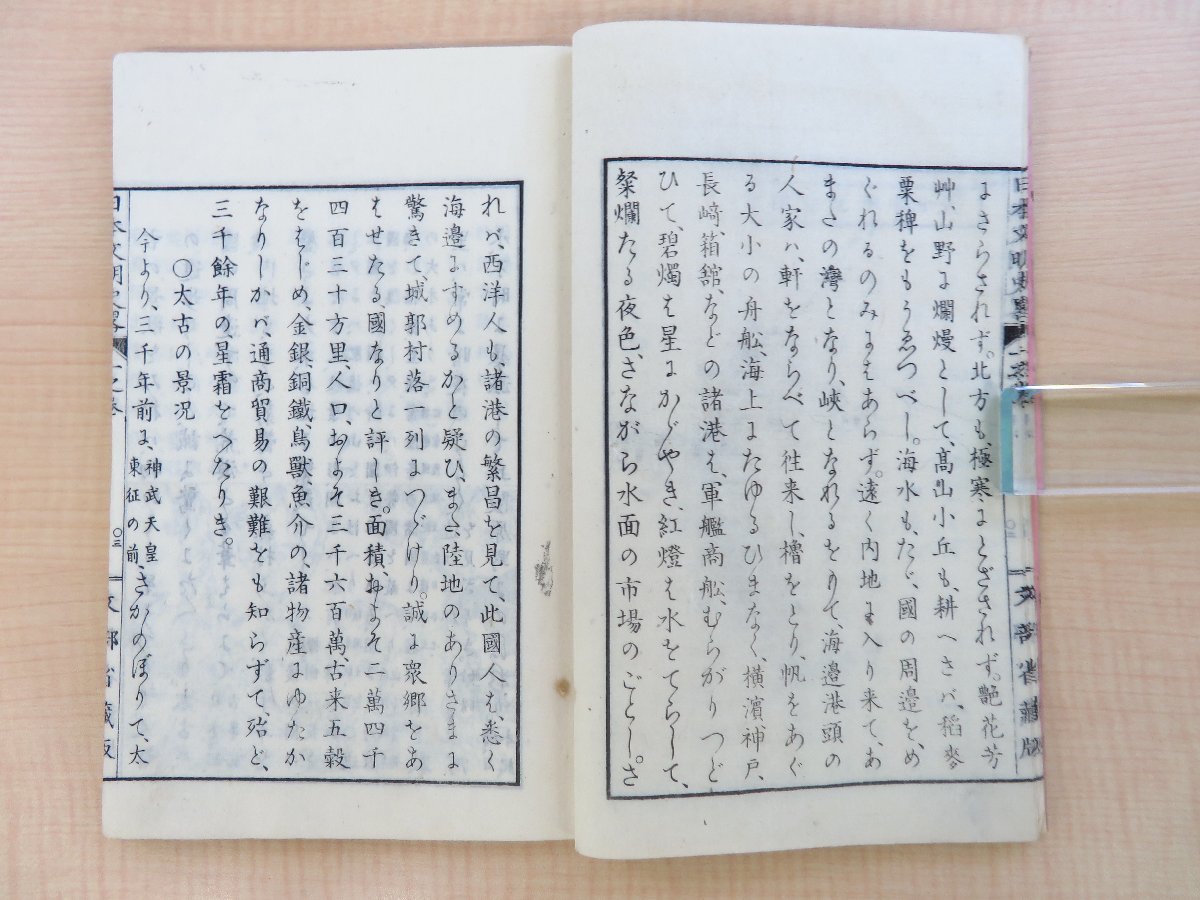 にさらされず。北方も、極寒にとざされず。艶花芳
艸、山野に爛熳として、高山小丘も、耕へさバ、稻麥
粟稗をもうゑつべし。海水も、たゞ國の周邊を、め
ぐれるのみにはあらず。遠く内地に入り来て、あ
またの灣となり、峡となれるをもて、海邊港頭の
人家ハ、軒をならべて往来し、櫓をとり、帆をあぐ
る大小の舟舩、海上にたゆるひまなく、横濵、神戸、
長﨑、箱舘、などの諸港は、軍艦商舩、むらがりつど
ひて、碧燭は星にかゞやき、紅燈は水をてらして、
粲爛たる夜色、さながら水面の市場のごとし。さ
れバ、西洋人も諸港の繁昌を見て、此國人は、悉く
海邊にすめるかと疑ひ、また、陸地のありさまに
驚きて、城郭村落一列につゞけり。誠に衆郷をあ
はせたる、國なりと評しき。面積、およそ二萬四千
四百三十方里、人口、およそ三千六百萬、古来五穀
をはじめ、金銀、銅鐵、鳥獸、魚介の、諸物産にゆたか
なりしかバ、通商貿易の艱難をも知らずて、殆ど、
三千餘年の星霜をへたりき。
〇太古の景况
今より、三千年前に、神武天皇東征の前、さかのぼりて、太
日本文明史畧 〇三 文部省藏版